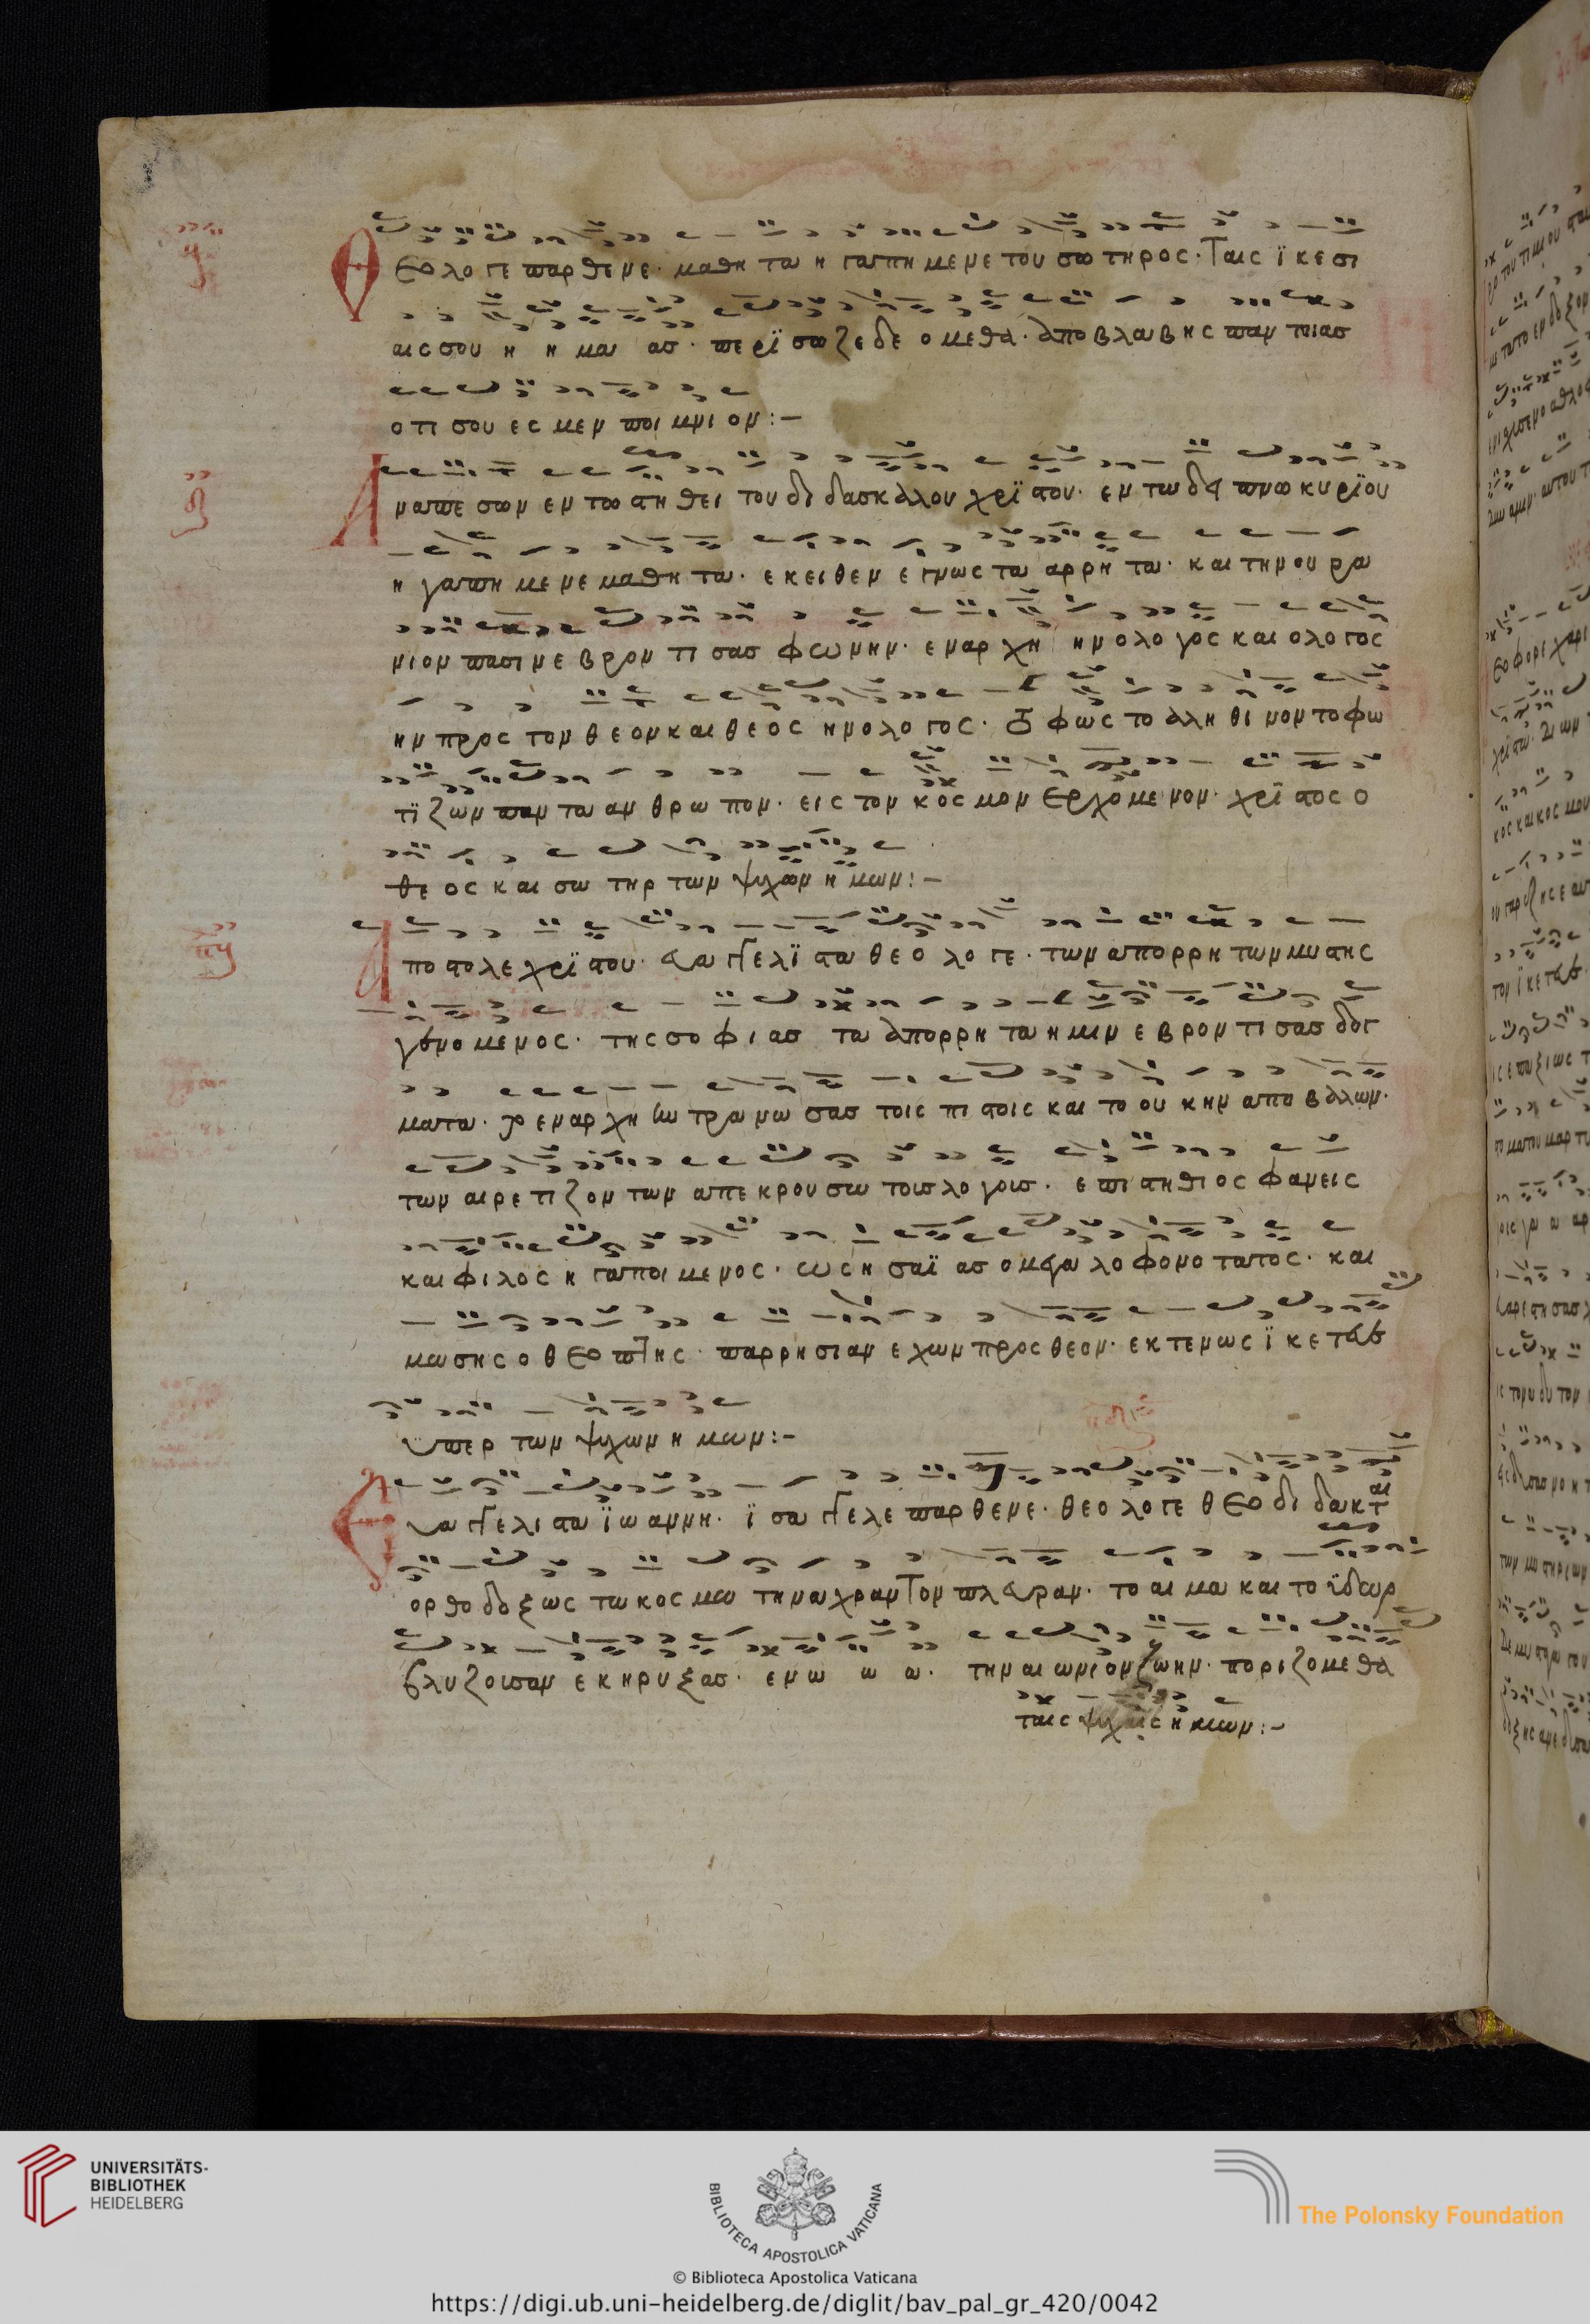 Θεολογε παρθενε· μαθητα ηγαπημενε του σωτηρος· Ταις ϊκεσι
αις σου η η μα ασ· περϊσωζε δεομεθα· απο βλαβης παντοιασ
οτι σου εσμεν ποιμνιον:–
Αναπεσων εν τω στηθει του διδασκαλου χρϊστου· εν τω δειπνω κυρϊου
ηγαπημενε μαθητα· εκειθεν εγνως τα αρρητα· και την ουρα
νιον πασιν εβροντισασ φωνην· εν αρχη ην ο λογος και ο λογος
ην προς τον θεον και θεος ην ο λογος· φως το αληθινον το φω
τϊζων παντα ανθρωπον· εις τον κοσμον ερχομενον· χρϊστος ο
θεος και σωτηρ των ψυχων ημων:–
Αποστολε χρϊστου· ευαγγελϊστα θεολογε· των απορρητων μυστης
γενομενος· της σοφιασ τα απορρητα ημιν εβροντισασ δογ
ματα· εν αρχη τρανωσασ τοις πιστοις και το ουκ ην αποβαλων·
των αιρετιζοντων απεκρουσω τουσ λογουσ· επιστηθιος φανεις
και φιλος ηγαποιμενος· ως ησαϊασ ο μεγαλοφονοτατος· και
μωσης ο θεοπτης· παρρησιαν εχων προς θεον· εκτενως ϊκετευε
υπερ των ψυχων ημων:–
Ευαγγελιστα ϊωαννη· ϊσαγγελε παρθενε· θεολογε θεοδιδακται
ορθοδοξως τω κοσμω την αχραντον πλευραν· το αιμα και το ϊδωρ
βλυζουσαν εκηρυξασ· εν ω ω ω· την αιωνιον ζωην· ποριζομεθα
ταις ψυχαις ημων:–
UNIVERSITÄTS-
BIBLIOTHEK
HEIDELBERG
BIBLIOTECA APOSTOLICA VATICANA
The Polonsky Foundation
© Biblioteca Apostolica Vaticana
https://digi.ub.uni-heidelberg.de/diglit/bav_pal_gr_420/0042